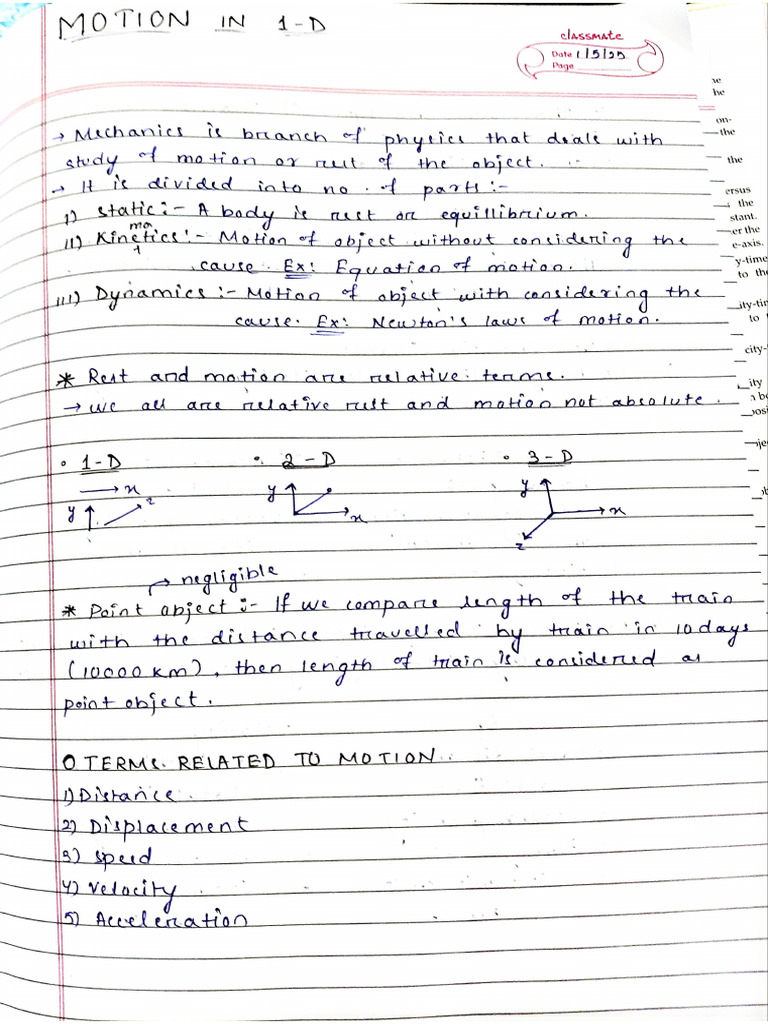 MOTION IN 1-D
classmate
Date 1/5/25
Page
→ Mechanics is branch of physics that deals with
study of motion or rest of the object.
→ It is divided into no. of parts :-
I) Static :- A body is rest or equillibrium.
ma
II) Kinetics :- Motion of object without considering the
cause. Ex: Equation of motion.
III) Dynamics :- Motion of object with considering the
cause. Ex: Newton's laws of motion.
* Rest and motion are relative terms.
→ we all are relative rest and motion not absolute.
• 1-D • 2-D • 3-D
x y z
y x
y x z
→ negligible
* Point object :- If we compare length of the train
with the distance travelled by train in 10 days
(10000 km), then length of train is considered as
point object.
O TERMS RELATED TO MOTION
1) Distance
2) Displacement
3) Speed
4) Velocity
5) Acceleration
he
on-
the
the
ersus
the
stant.
er the
e-axis.
y-time
to the
ity-tim
to
city-
ity